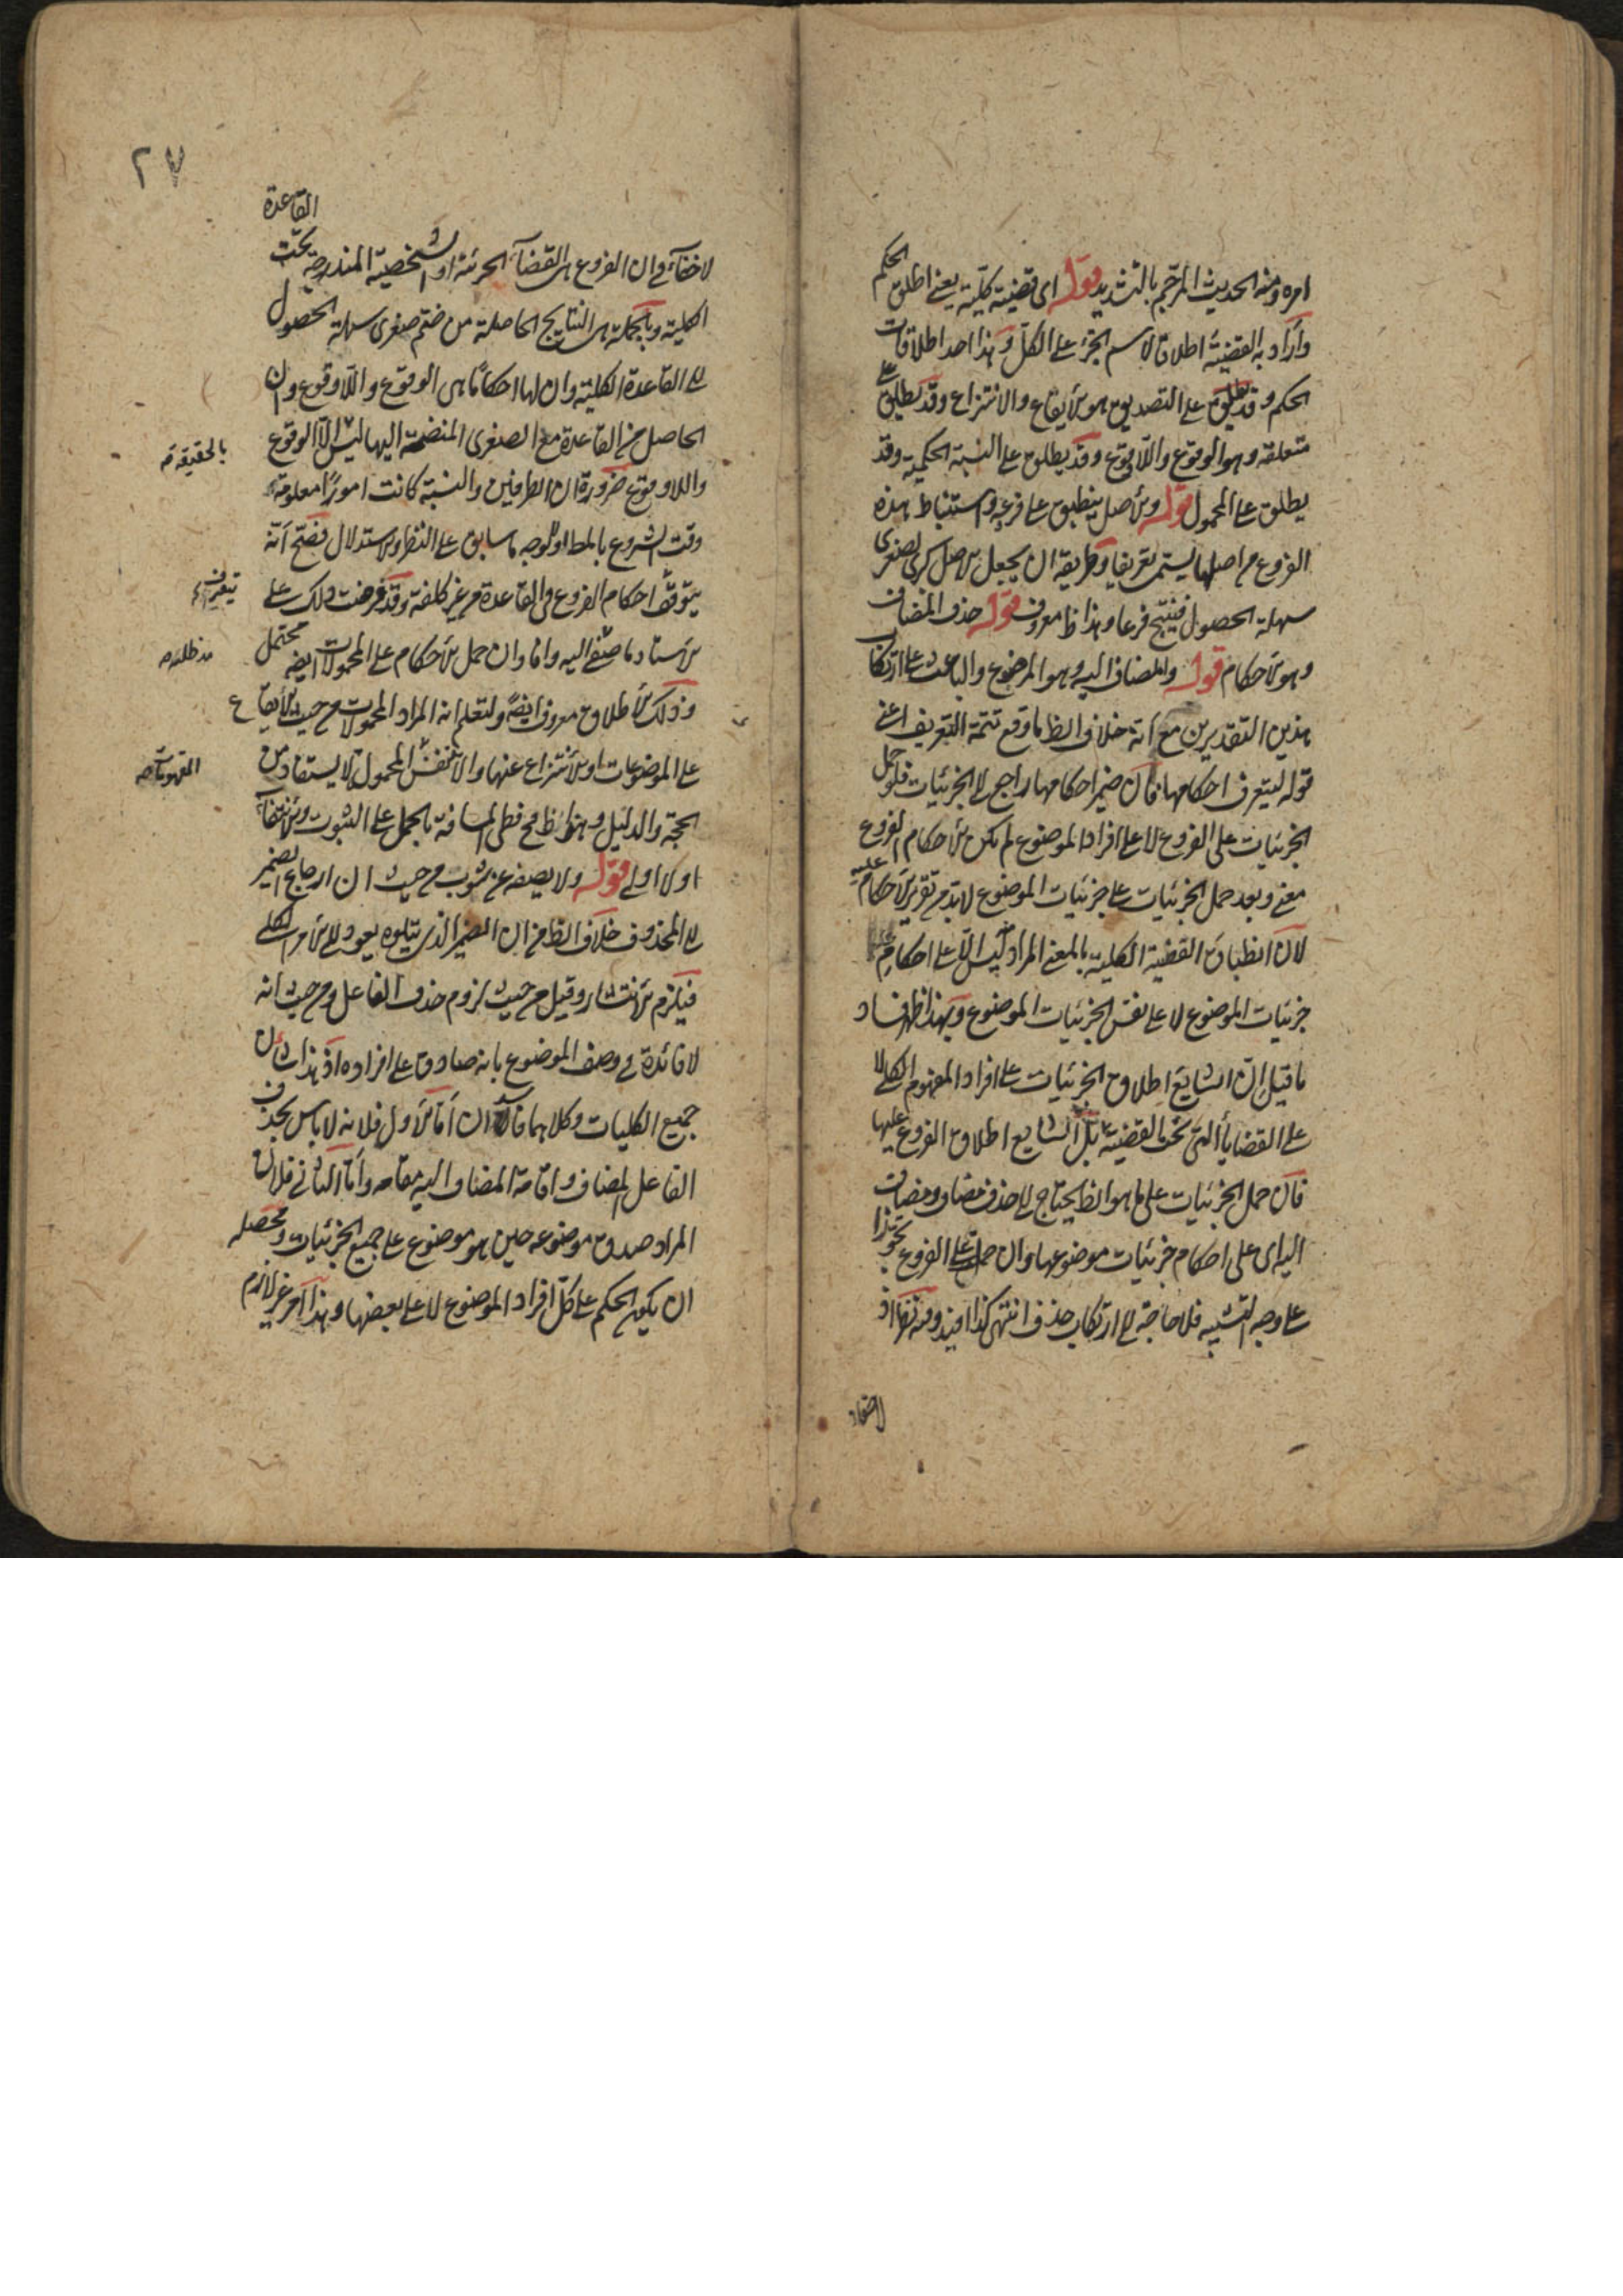 امره ومنه الحديث المرجم بالتشديد قوله اى قضية كلية يعنى اطلق الحكم
وأراد به القضية اطلاقا لاسم الجزء على الكل وهذا احد اطلاقات
الحكم وقد يطلق على التصديق وهو الايقاع والانتزاع وقد يطلق على
متعلقه وهو الوقوع واللاوقوع وقد يطلق على النسبة الحكمية وقد
يطلق على المحمول قوله والاصل ينطبق على فرعه واستنباط هذه
الفروع من اصلها يسمى تفريعا وطريقه ان يجعل الاصل كبرى لصغرى
سهلة الحصول فينتج فرعا وهذا ظ معروف قوله حذف المضاف
وهو الاحكام قوله والمضاف اليه وهو الموضوع والباعث على ارتكاب
هذين التقديرين مع أنه خلاف الظ ما وقع تتمة التعريف اعنى
قوله ليتعرف احكامها فان ضمير احكامها راجع الى الجزئيات فلو حمل
الجزئيات على الفروع لا على افراد الموضوع لم يكن لاحكام الفروع
معنى وبعد حمل الجزئيات على جزئيات الموضوع لا بد من تقرير الاحكام عليه
لان انطباق القضية الكلية بالمعنى المراد ليس الا على احكام
جزئيات الموضوع لا على نفس الجزئيات الموضوع وبهذا ظهر فساد
ما قيل ان الشايع اطلاق الجزئيات على افراد المفهوم الكلى لا
على القضايا التى تحت القضية بل الشايع اطلاق الفروع عليها
فان حمل الجزئيات على ما هو الظ يحتاج الى حذف مضاف ومضاف
اليه اى على احكام جزئيات موضوعها وان حملت على الفروع تجوزا
على وجه التشبيه فلا حاجة الى ارتكاب حذف انتهى كذا افيد وفيه نظر اذ
لاخفاء
٢٧
لاخفاء فى ان الفروع هى القضايا الجزئية او الشخصية المندرجة تحت القاعدة
الكلية وبالجملة هى النتايج الحاصلة من ضم صغرى سهلة الحصول
الى القاعدة الكلية وان لها احكاما هى الوقوع واللاوقوع وان
الحاصل من القاعدة مع الصغرى المنضمة اليها ليس الا الوقوع
بالحقيقة
واللاوقوع ضرورة ان الطرفين والنسبة كانت امورا معلومة
وقت الشروع بالمط او بوجه ما سابق على النظر والاستدلال فصح أنه
يتوقف احكام الفروع من القاعدة من غير كلفة وقد فرضت ذلك على
يتعرف
الاستاد فاصغى اليه وافاد ان حمل الاحكام على المحمولات ايضه محتمل
وذلك الاطلاق معروف ايضه ولتعلم انه المراد المحمولات من حيث الايقاع
على الموضوعات او الانتزاع عنها والا فنفس المحمول لا يستفاد من
الحجة والدليل وهذا ظ فح قطى المسافة بالحمل على الثبوت والانتفاء
اولا اولى قوله ولا يصفه عن شوب من حيث ان ارجاع الضمير
الى المحذوف خلاف الظ من ان الضمير الذى يتلوه يعود الى الامر الكلى
فيلزم الانتشار وقيل من حيث لزوم حذف الفاعل ومن حيث انه
لا فائدة فى وصف الموضوع بانه صادق على افراده اذ هذا شان
جميع الكليات وكلاهما فاسدان اما الاول فلانه لا باس بحذف
الفاعل المضاف واقامة المضاف اليه مقامه وأما الثانى فلان
المراد صدق موضوعه حين هو موضوع على جميع الجزئيات ومحصله
ان يكون الحكم على كل افراد الموضوع لا على بعضها وهذا امر غير لازم